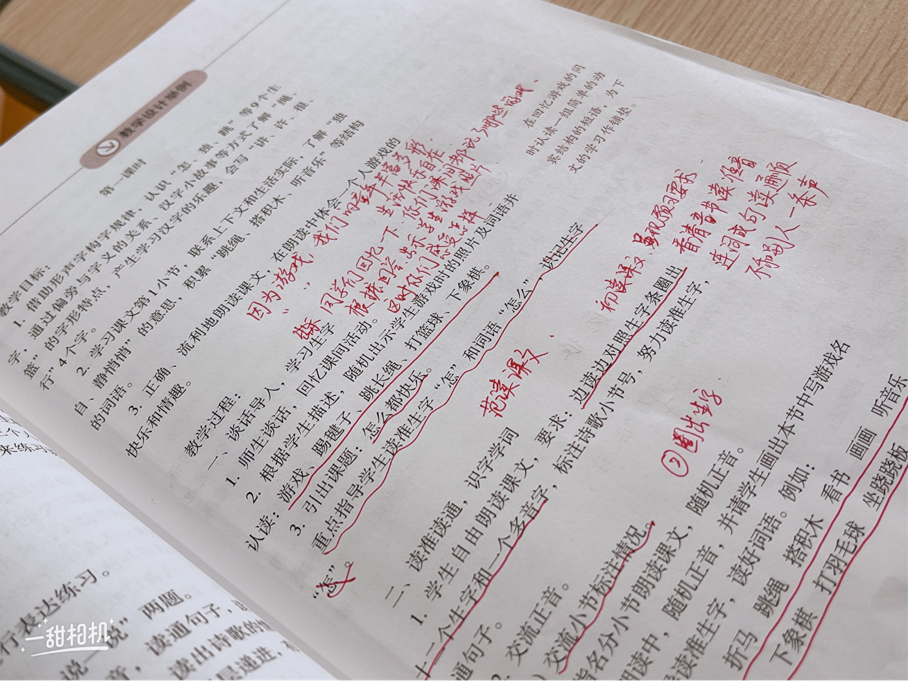 教学设计举例
第一课时
教学目标：
1. 借助形声字构字规律，认识“怎、独、跳”等9个生
字，通过偏旁与字义的关系、汉字小故事等方式了解“绳、
篮”的字形特点，产生学习汉字的乐趣。会写“讲、许、很、
行”4个字。
2. 学习课文第1小节，联系上下文和生活实际，了解“独
自、静悄悄”的意思，积累“跳绳、搭积木、听音乐”等结构
的词语。
3. 正确、流利地朗读课文，在朗读中体会一个人游戏的
快乐和情趣。
教学过程：
一、谈话导入，学习生字
1. 师生谈话，回忆课间活动。
2. 根据学生描述，随机出示学生游戏时的照片及词语并
认读：游戏、踢毽子、跳长绳、打篮球、下象棋。
3. 引出课题：怎么都快乐。
重点指导学生读准生字“怎”和词语“怎么”，识记生字
“怎”。
二、读准读通，识字学词
1. 学生自由朗读课文，要求：边读边对照生字条圈出
十二个生字和一个多音字，标注诗歌小节号，努力读准生字，
通句子。
2. 交流正音。
交流小节标注情况。
指名分小节朗读课文，随机正音。
朗读中，随机正音，并请学生画出本节中写游戏名
读准生字，读好词语。例如：
折马 跳绳 搭积木 看书 画画 听音乐
下象棋 打羽毛球 坐跷跷板
在回忆游戏的同
时认读一组简单的动
宾结构的短语，为下
文的学习作铺垫。
因为游戏，我们的童年丰富多彩
生活快乐自在
同学们回忆一下，你们课间都玩了哪些游戏、
根据回答出示学生游戏照片
这时你们感受怎样
范读课文、
初读课文
看着音节读准音
连词成句读通顺
不加别人一条声
②圈出生字
行表达练习。
说一说”两题。
音，读通句子，
读出诗歌的
一甜相机